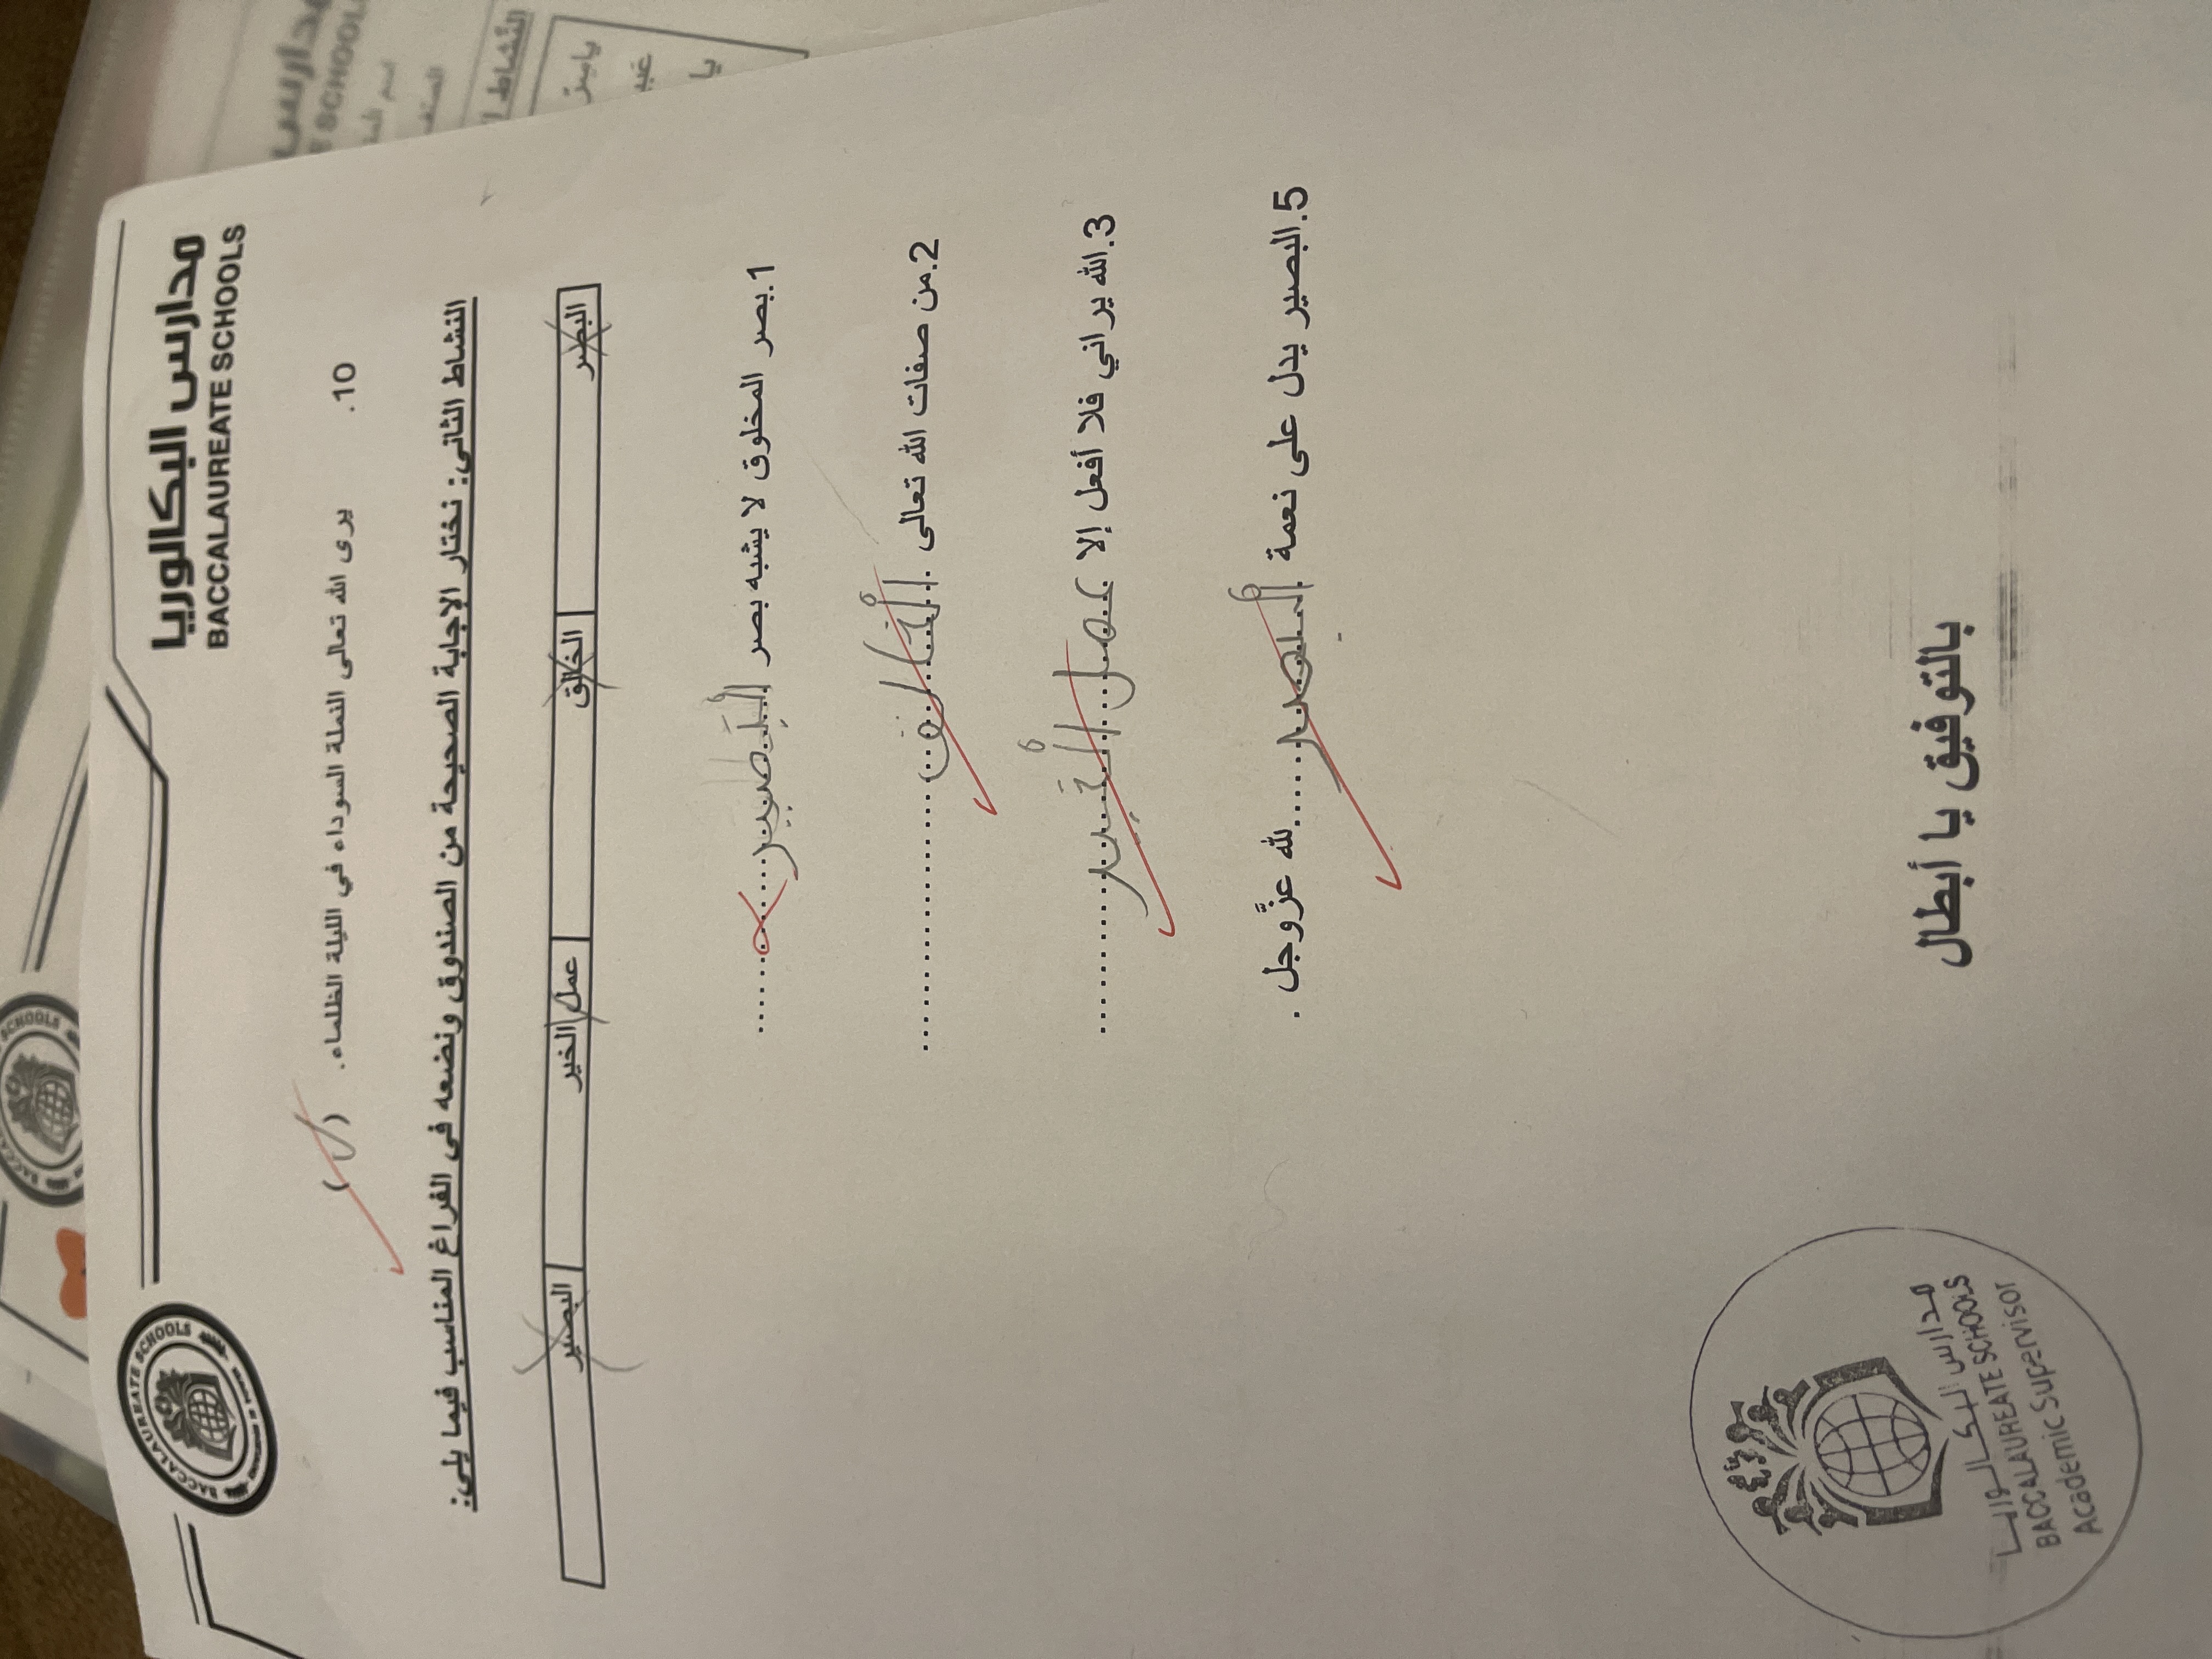 مدارس البكالوريا
BACCALAUREATE SCHOOLS
BACCALAUREATE SCHOOLS
10. يرى الله تعالى النملة السوداء في الليلة الظلماء. ( ✓ )
النشاط الثاني: نختار الإجابة الصحيحة من الصندوق ونضعه في الفراغ المناسب فيما يلي:
البصر الخالق عمل الخير البصير
1.بصر المخلوق لا يشبه بصر البصير
2.من صفات الله تعالى الخالق
3.الله يراني فلا أفعل إلا عمل الخير
5.البصير يدل على نعمة البصر لله عزَّوجل .
بالتوفيق يا أبطال
مدارس البكالوريا
BACCALAUREATE SCHOOLS
Academic Supervisor
مدارس
SCHOOLS
النشاط
يا
SCHOOLS